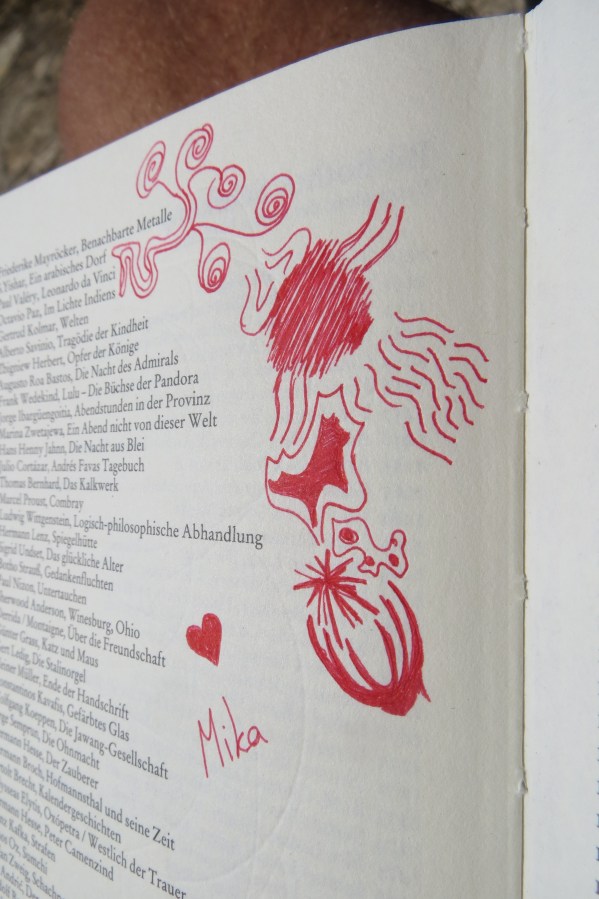 Friederike Mayröcker, Benachbarte Metalle
S. Yishar, Ein arabisches Dorf
Paul Valéry, Leonardo da Vinci
Octavio Paz, Im Lichte Indiens
Gertrud Kolmar, Welten
Alberto Savinio, Tragödie der Kindheit
Zbigniew Herbert, Opfer der Könige
Augusto Roa Bastos, Die Nacht des Admirals
Frank Wedekind, Lulu – Die Büchse der Pandora
Jorge Ibargüengoitia, Abendstunden in der Provinz
Marina Zwetajewa, Ein Abend nicht von dieser Welt
Hans Henny Jahnn, Die Nacht aus Blei
Julio Cortázar, Andrés Favas Tagebuch
Thomas Bernhard, Das Kalkwerk
Marcel Proust, Combray
Ludwig Wittgenstein, Logisch-philosophische Abhandlung
Hermann Lenz, Spiegelhütte
Sigrid Undset, Das glückliche Alter
Botho Strauß, Gedankenfluchten
Paul Nizon, Untertauchen
Sherwood Anderson, Winesburg, Ohio
Derrida / Montaigne, Über die Freundschaft
Günter Grass, Katz und Maus
Gert Ledig, Die Stalinorgel
Heiner Müller, Ende der Handschrift
Konstantinos Kavafis, Gefärbtes Glas
Wolfgang Koeppen, Die Jawang-Gesellschaft
Jorge Semprun, Die Ohnmacht
Hermann Hesse, Der Zauberer
Hermann Broch, Hofmannsthal und seine Zeit
Bertolt Brecht, Kalendergeschichten
Odysseas Elytis, Oxópetra / Westlich der Trauer
Hermann Hesse, Peter Camenzind
Franz Kafka, Strafen
Amos Oz, Sumchi
Stefan Zweig, Schachn
Andrić, Der
Mika